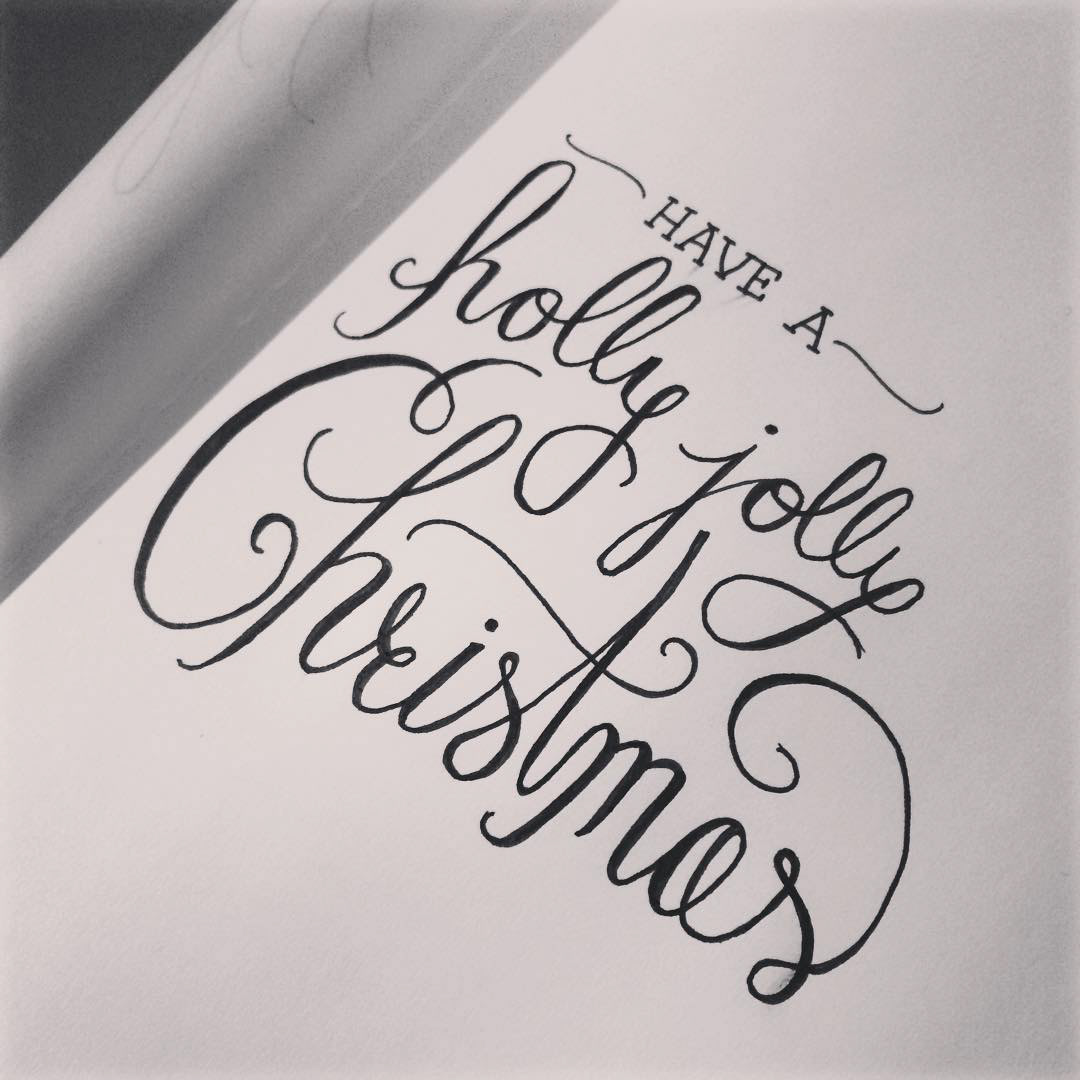 HAVE A
holly jolly
Christmas